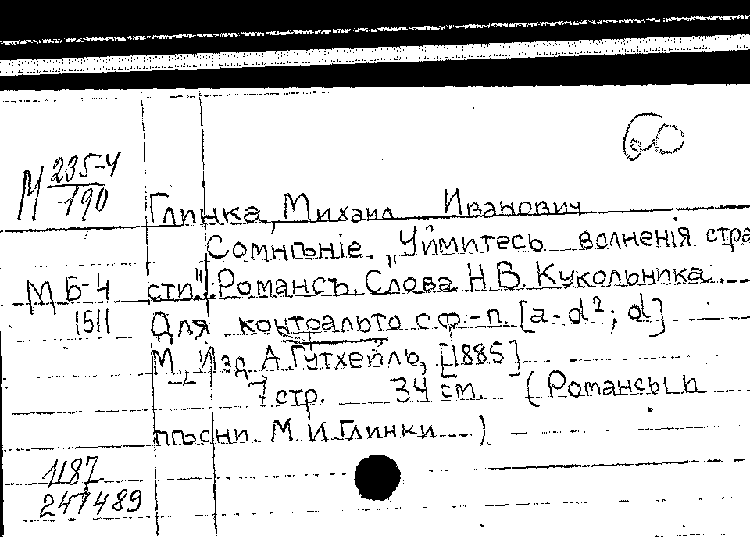 60
М 235-4
190
Глинка, Михаил Иванович
Сомнѣніе. „Уймитесь волненія стра
М Б-4 сти". Романсъ. Слова Н. В. Кукольника.
1511 Для контральто с ф.-п. [a - d²; d]
М., Изд. А. Гутхейль, [1885]
7 стр. 34 см. (Романсы и
пѣсни М. И. Глинки)
1187
247489